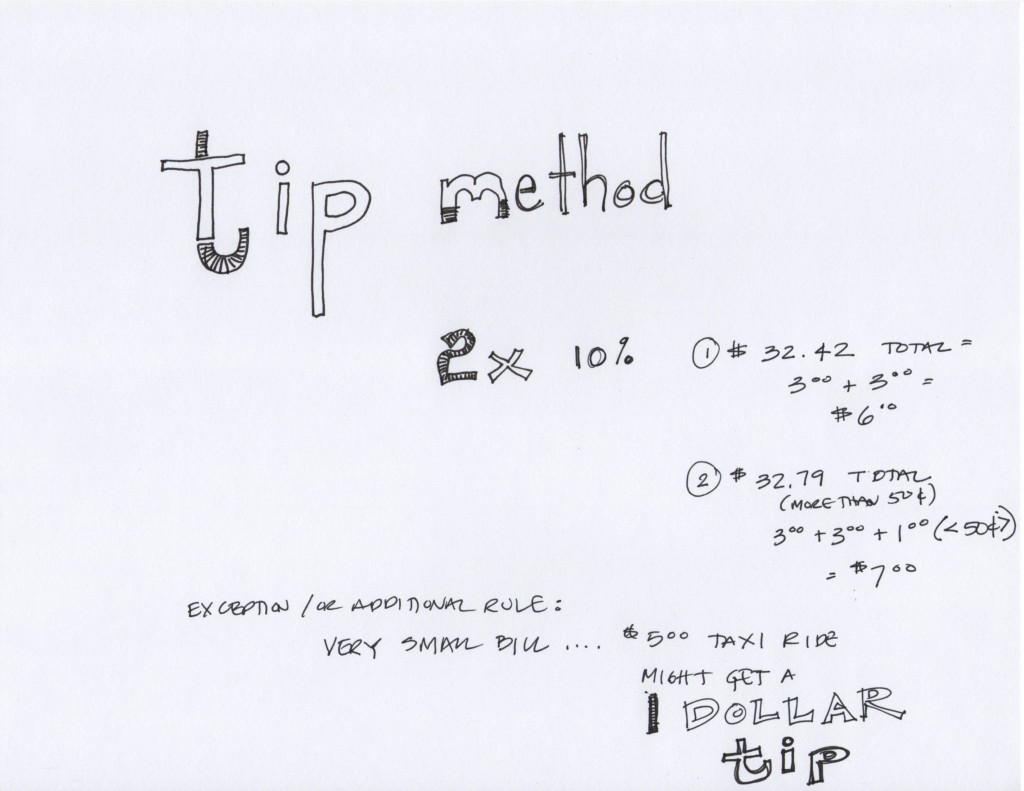 tip method
2x 10%
① $ 32.42 TOTAL =
3⁰⁰ + 3⁰⁰ =
$6⁰⁰
② $ 32.79 TOTAL
(MORE THAN 50¢)
3⁰⁰ + 3⁰⁰ + 1⁰⁰ (<50¢>)
= $7⁰⁰
EXCEPTION / OR ADDITIONAL RULE:
VERY SMALL BILL .... $5⁰⁰ TAXI RIDE
MIGHT GET A
1 DOLLAR
tip